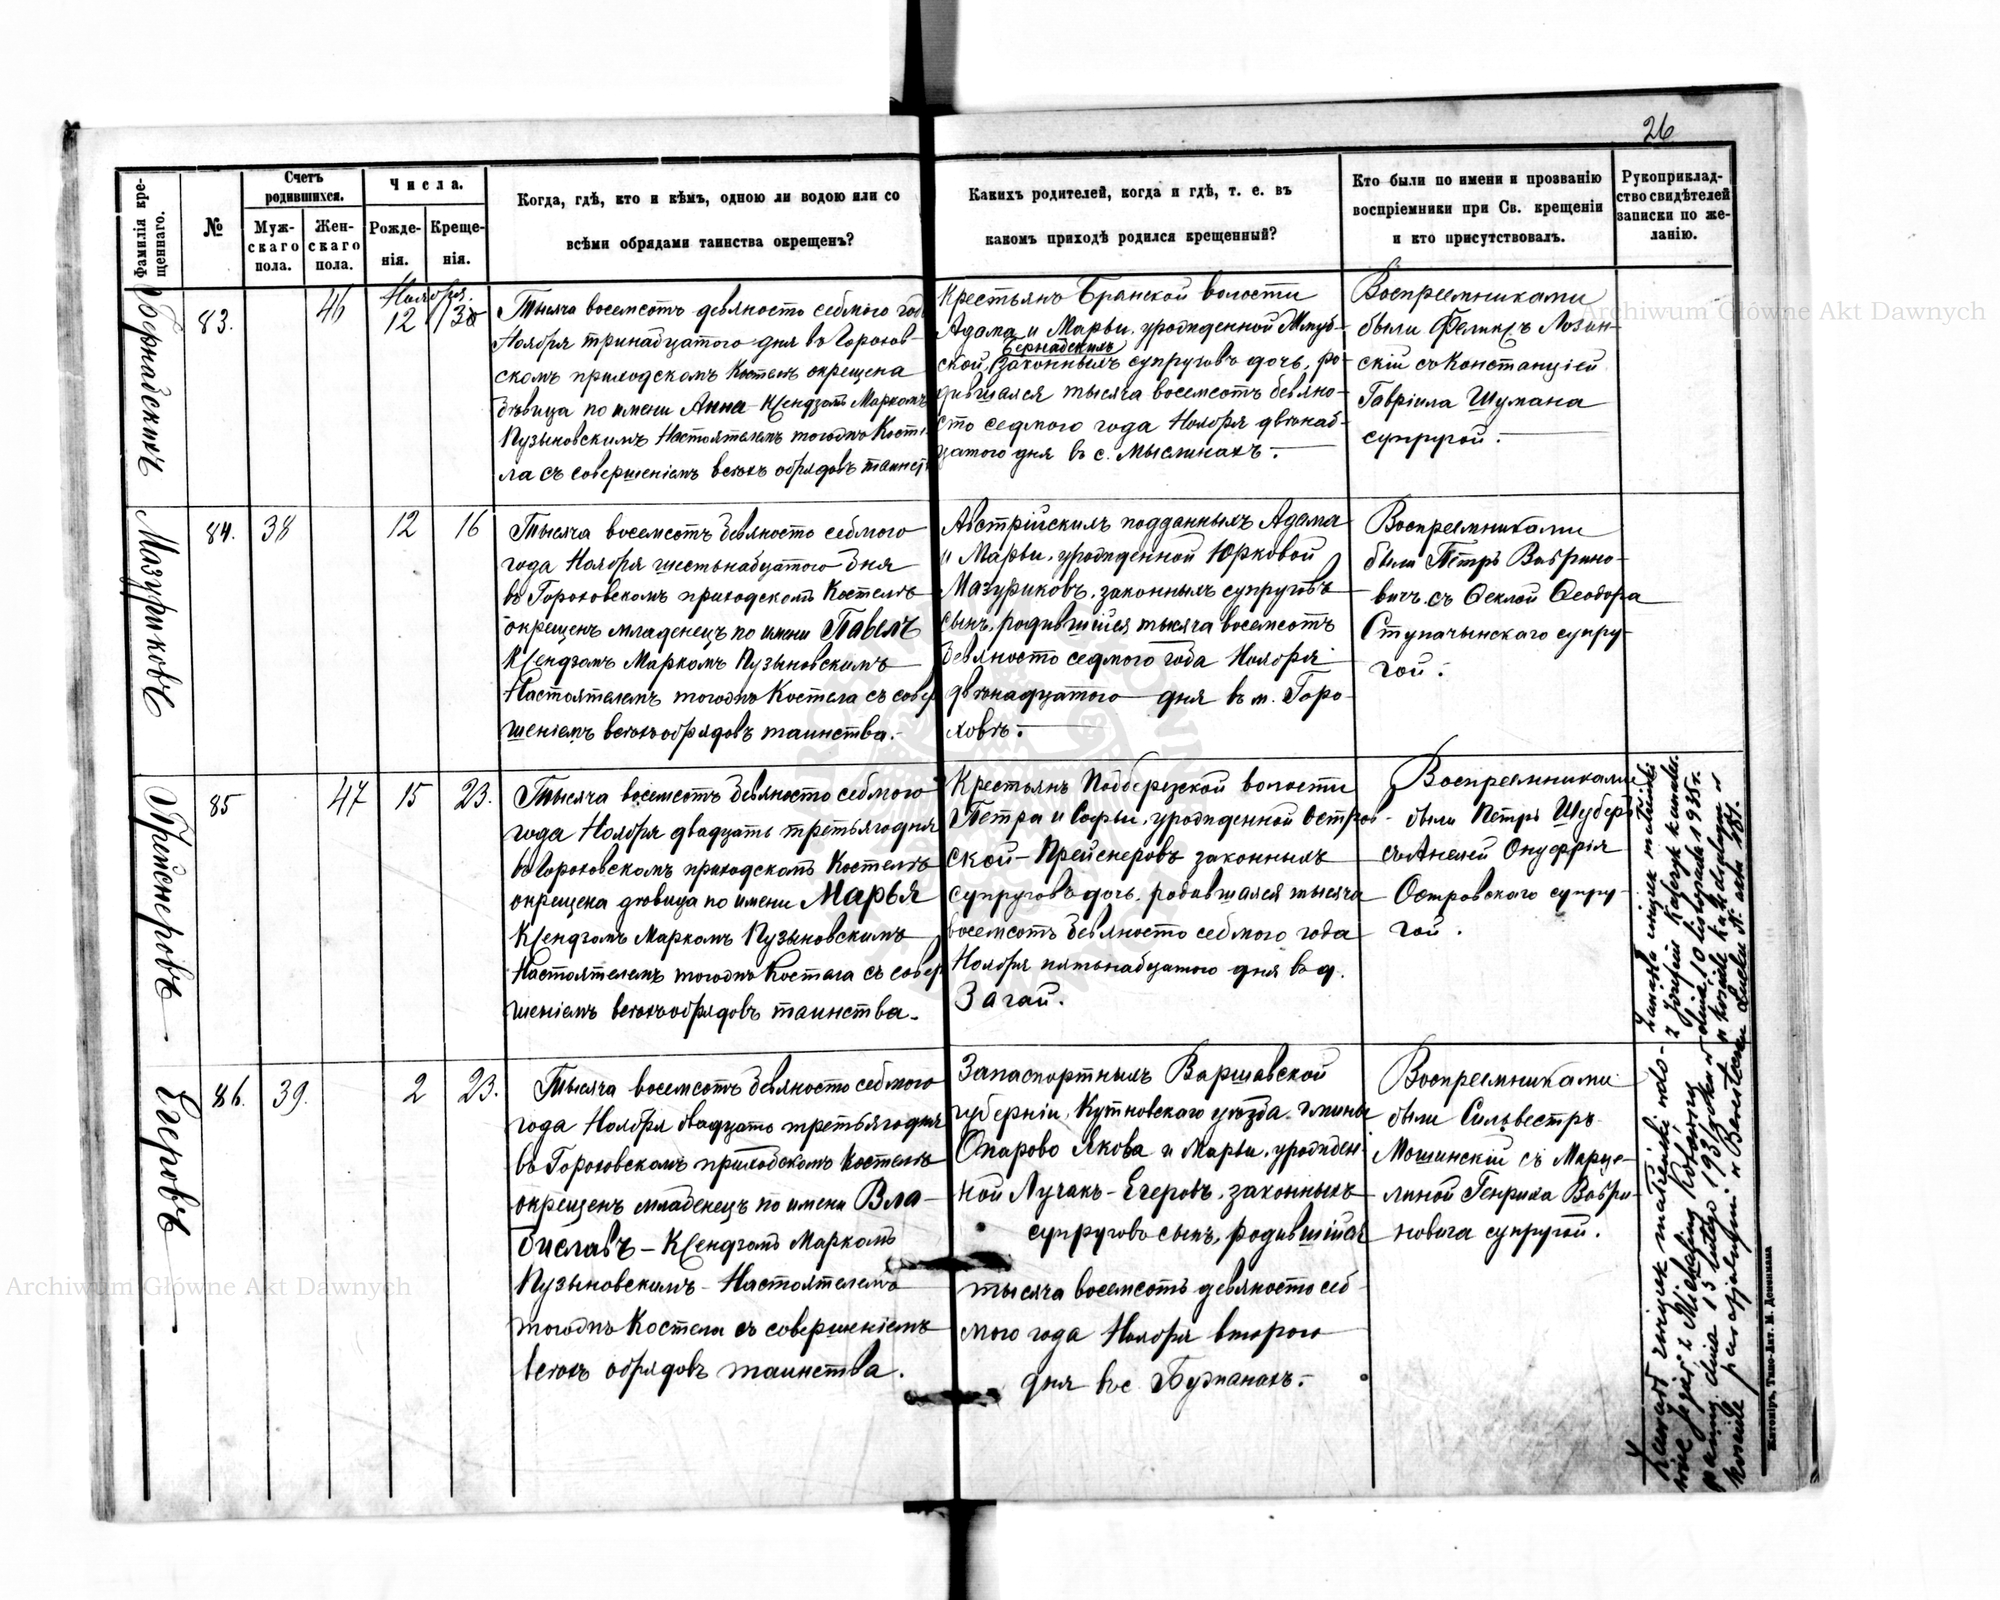 26
Фамилія кре-
щеннаго.
№
Счетъ
родившихся.
Муж-
скаго
пола.
Жен-
скаго
пола.
Числа.
Рожде-
нія.
Креще-
нія.
Когда, гдѣ, кто и кѣмъ, одною ли водою или со
всѣми обрядами таинства окрещенъ?
Какихъ родителей, когда и гдѣ, т. е. въ
какомъ приходѣ родился крещенный?
Кто были по имени и прозванію
воспріемники при Св. крещеніи
и кто присутствовалъ.
Рукоприклад-
ство свидѣтелей
записки по же-
ланію.
Бернадскихъ
83.
46
Ноября.
12
13
Тысяча восемсотъ девяносто седмого года
Ноября тринадцатого дня въ Горохов-
скомъ приходскомъ Костелѣ окрещена
дѣвица по имени Анна - Ксендзомъ Маркомъ
Пузыновскимъ Настоятелемъ тогожъ Косте-
ла съ совершеніемъ всѣхъ обрядовъ таинства
Крестьянъ Бранской волости
Адама и Марьи, урожденной
ской, Бернадскихъ законныхъ супруговъ дочь, ро-
дившаяся тысяча восемсотъ девяно-
сто седмого года Ноября двѣнад-
цатого дня въ с. Мыслинахъ.
Воспреемниками
были Феликсъ Лозин-
скій съ Констанціей
Гавріила Шумана
супругой.
Мазуриковъ
84.
38
12
16
Тысяча восемсотъ девяносто седмого
года Ноября шестьнадцатого дня
въ Гороховскомъ приходскомъ Костелѣ
окрещенъ младенецъ по имени Павелъ
Ксендзомъ Маркомъ Пузыновскимъ
Настоятелемъ тогожъ Костела съ совер-
шеніемъ всѣхъ обрядовъ таинства.
Австрійскихъ подданныхъ Адама
и Марьи, урожденной Юрковой
Мазуриковъ, законныхъ супруговъ
сынъ, родившійся тысяча восемсотъ
девяносто седмого года Ноября
двѣнадцатого дня въ м. Горо-
ховѣ.
Воспреемниками
были Петръ Ваврино-
вичъ съ Ѳеклой Ѳеодора
Ступачынскаго супру-
гой.
Прейснеровъ
85
47
15
23.
Тысяча восемсотъ девяносто седмого
года Ноября двадцать третьяго дня
въ Гороховскомъ приходскомъ Костелѣ
окрещена дѣвица по имени Марья
Ксендзомъ Маркомъ Пузыновскимъ
Настоятелемъ тогожъ Костела съ совер-
шеніемъ всѣхъ обрядовъ таинства.
Крестьянъ Подберезской волости
Петра и Софьи, урожденной Остров-
ской - Прейснеровъ законныхъ
супруговъ дочь, родившаяся тысяча
восемсотъ девяносто седмого года
Ноября пятьнадцатого дня въ д.
Загай.
Воспреемниками
были Петръ Шуберъ
съ Анелей Онуфрія
Островского супру-
гой.
Zawarła związek małżeński
z Józefem
dnia 10 listopada 1935 r.
w kościele
Егеровъ
86.
39.
2
23.
Тысяча восемсотъ девяносто седмого
года Ноября двадцать третьяго дня
въ Гороховскомъ приходскомъ Костелѣ
окрещенъ младенецъ по имени Вла-
диславъ - Ксендзомъ Маркомъ
Пузыновскимъ - Настоятелемъ
тогожъ Костела съ совершеніемъ
всѣхъ обрядовъ таинства.
Запаспортныхъ Варшавской
губерніи, Кутновского уѣзда, гмины
Опарово Якова и Марьи, урожден-
ной Лучакъ - Егеровъ, законныхъ
супруговъ сынъ, родившійся
тысяча восемсотъ девяносто сед-
мого года Ноября второго
дня въ с. Бужанахъ.
Воспреемниками
были Сильвестръ
Мошинскій съ Марце-
линой Генриха Ваври-
новича супругой.
Zawarł związek małżeński
z
dnia 15 lutego 1931
kościele parafjalnym w Beresteczku
Житоміръ, Типо-Лит. М. Дененмана
Archiwum Główne Akt Dawnych
Archiwum Główne Akt Dawnych